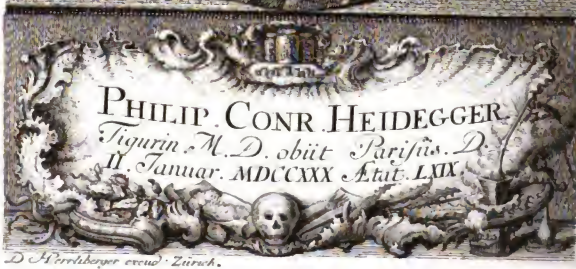 PHILIP. CONR. HEIDEGGER
Tigurin. M. D. obiit Parisiis. D.
II. Januar. MDCCXXX Ætat. LXIX
D Herrliberger excud. Zürich.